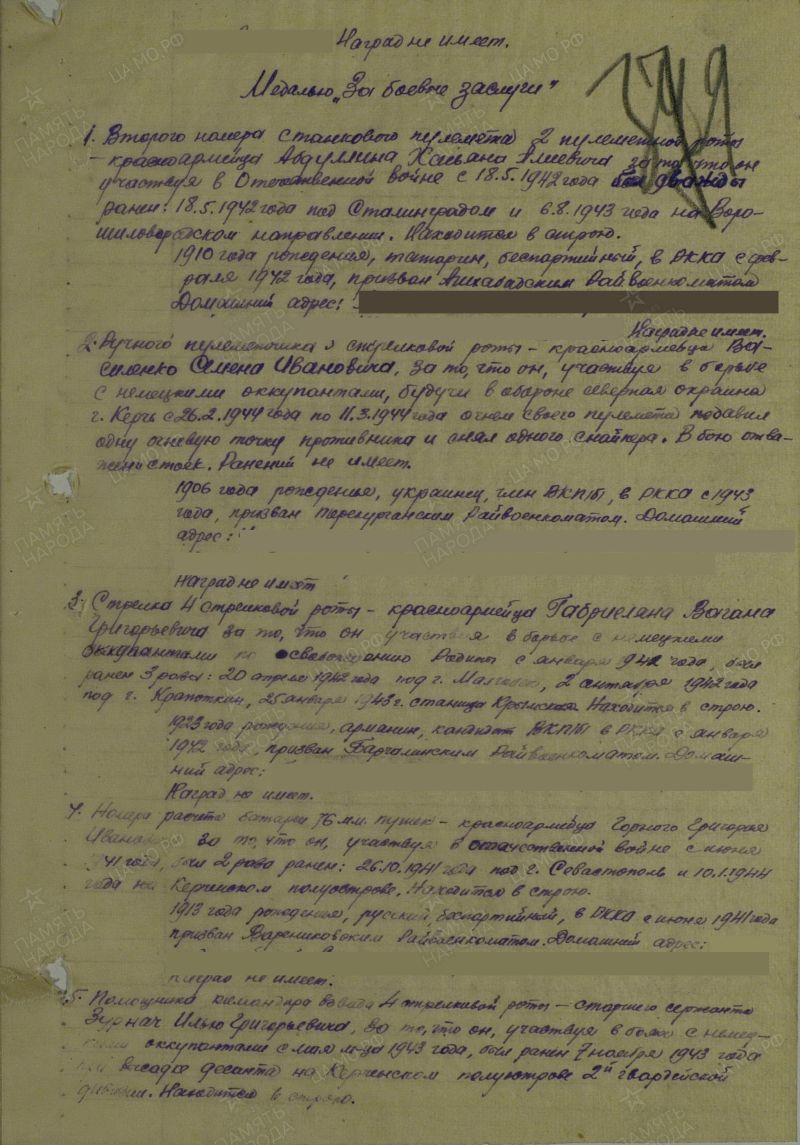 Наград не имеет.
Медалью „За боевые заслуги"
1. Второго номера станкового пулемета 2 пулеметной роты
– красноармейца Абдуллина за то, что он
участвуя в Отечественной войне с 18.5.1942 года был дважды
ранен: 18.5.1942 года под Сталинградом и 6.8.1943 года на Воро-
шиловградском направлении. Находится в строю.
1910 года рождения, татарин, беспартийный, в РККА с фев-
раля 1942 года, призван Ашхабадским Райвоенкоматом
Домашний адрес:
Наград не имеет.
2. Ручного пулеметчика стрелковой роты – красноармейца Ва-
силенко Семена Ивановича, за то, что он, участвуя в борьбе
с немецкими оккупантами, будучи в обороне северная окраина
г. Керчь с 26.2.1944 года по 11.3.1944 года огнем своего пулемета подавил
одну огневую точку противника и снял одного снайпера. В бою отва-
жен и стоек. Ранений не имеет.
1906 года рождения, украинец, член ВКП/б/, в РККА с 1943
года, призван Райвоенкоматом. Домашний
адрес:
Наград не имеет
3. Стрелка 4 стрелковой роты – красноармейца Габриеляна Вагана
Григорьевича за то, что он участвуя в борьбе с немецкими
оккупантами по освобождению Родины с января 1942 года, был
ранен 3 раза: 20 апреля 1942 года под г. 2 октября 1942 года
под г. Кропоткин, 25 января 1943 г. станица Крымская. Находится в строю.
1923 года рождения, армянин, кандидат ВКП/б/ в РККА с января
1942 года, призван Райвоенкоматом. Домаш-
ний адрес:
Наград не имеет.
4. Номера расчета батареи 76 мм. пушек – красноармейца Горного Григория
Ивановича за то, что он, участвуя в отечественной войне с июня
1941 года, был 2 раза ранен: 26.10.1941 года под г. Севастополь и 10.1.1944
года на Керченском полуострове. Находится в строю.
1913 года рождения, русский, беспартийный, в РККА с июня 1941 года
призван Варениковским Райвоенкоматом. Домашний адрес:
наград не имеет.
5. Помощника командира взвода 4 стрелковой роты – старшего сержанта
Зурнач Илью Григорьевича, за то, что он, участвуя в боях с немец-
кими оккупантами с мая м-ца 1943 года, был ранен 7 ноября 1943 года
при высадке десанта на Керченском полуострове 2й гвардейской
дивизии. Находится в строю.